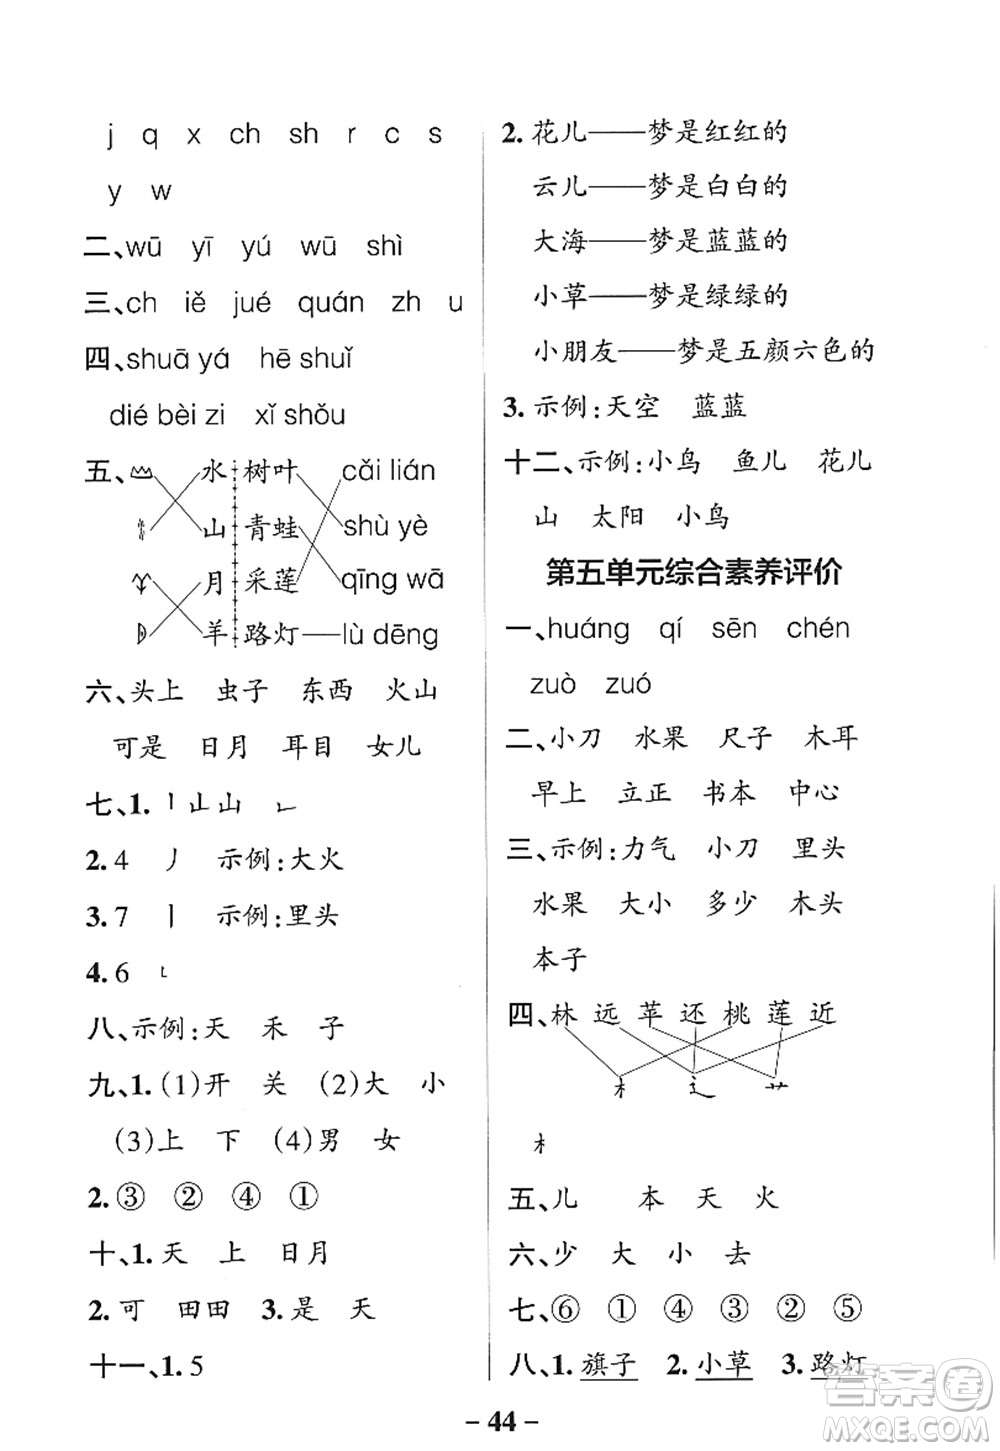 j q x ch sh r c s
y w
二、wū yī yú wū shì
三、ch iě jué quán zh u
四、shuā yá hē shuǐ
dié bèi zi xǐ shǒu
五、 水 树叶 cǎi lián
山 青蛙 shù yè
月 采莲 qīng wā
羊 路灯 lù dēng
六、头上 虫子 东西 火山
可是 日月 耳目 女儿
七、1. 丨 山 ㇗
2. 4 丿 示例:大火
3. 7 丨 示例:里头
4. 6
八、示例:天 禾 子
九、1. (1)开 关 (2)大 小
(3)上 下 (4)男 女
2. ③ ② ④ ①
十、1. 天 上 日月
2. 可 田田 3. 是 天
十一、1. 5
2. 花儿——梦是红红的
云儿——梦是白白的
大海——梦是蓝蓝的
小草——梦是绿绿的
小朋友——梦是五颜六色的
3. 示例:天空 蓝蓝
十二、示例:小鸟 鱼儿 花儿
山 太阳 小鸟
第五单元综合素养评价
一、huáng qí sēn chén
zuò zuó
二、小刀 水果 尺子 木耳
早上 立正 书本 中心
三、示例:力气 小刀 里头
水果 大小 多少 木头
本子
四、林 远 苹 还 桃 莲 近
木 辶 艹
木
五、儿 本 天 火
六、少 大 小 去
七、⑥ ① ④ ③ ② ⑤
八、1. 旗子 2. 小草 3. 路灯
- 44 -
答案圈
MXQE.COM